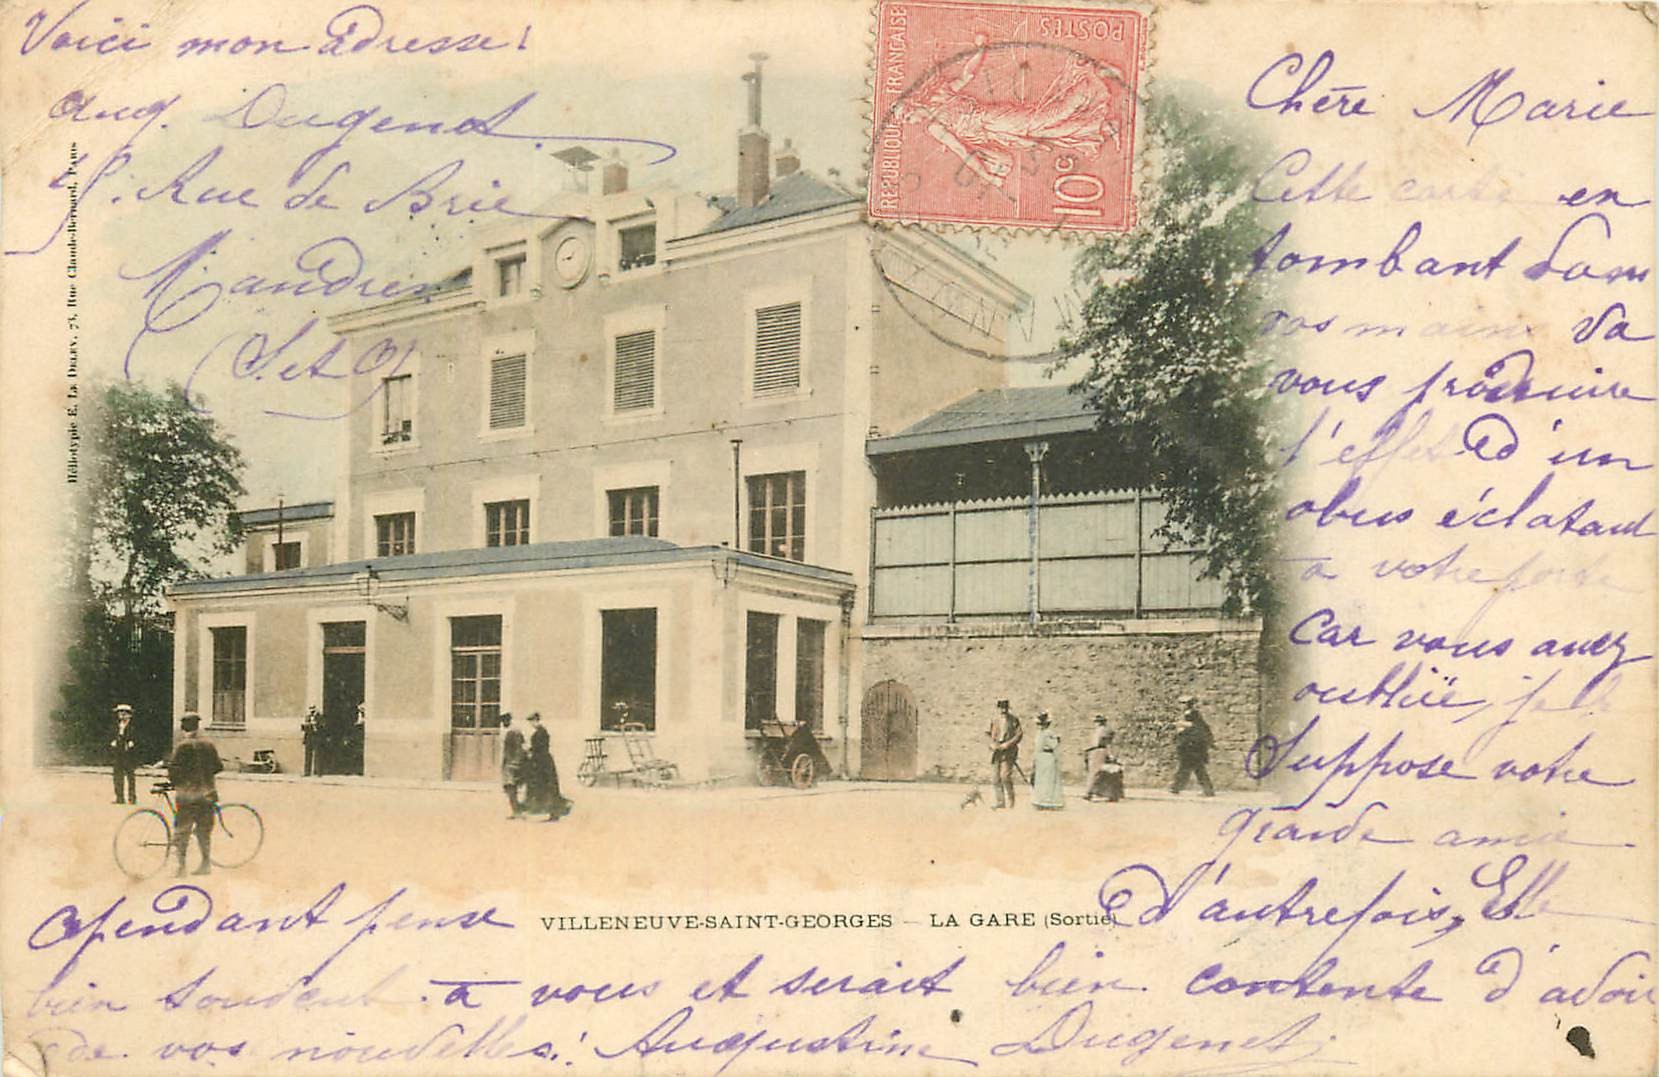 Voici mon adresse!
Aug. Dugenet.
Rue de Brie
Mandres
(S. et O)
Héliotypie E. Le Deley, 73, Rue Claude-Bernard, Paris
RÉPUBLIQUE FRANÇAISE
POSTES
10c
Chère Marie
Cette carte en
tombant dans
vos mains va
vous produire
l'effet d'un
obus éclatant
à votre porte
Car vous avez
oubliée, je le
suppose votre
grande amie
d'autrefois, Elle
cependant pense
VILLENEUVE-SAINT-GEORGES — LA GARE (Sortie)
bien souvent à vous et serait bien contente d'avoir
de vos nouvelles! Augustine Dugenet